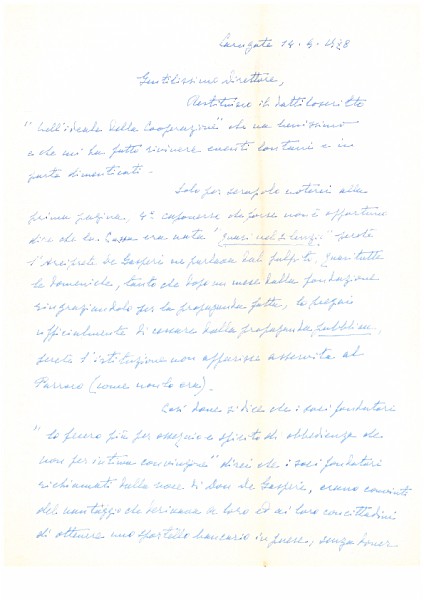 Carugate 14.4.1978
Gentilissimo Direttore,
Restituisco il dattiloscritto
"Nell'ideale della Cooperazione" che va benissimo
e che mi ha fatto rivivere eventi lontani e in
parte dimenticati.
Solo per scrupolo noterei alla
prima pagina, 4° capoverso che forse non è opportuno
dire che la Cassa era nata "quasi nel silenzio" perché
l'Arciprete De Gasperi ne parlava dal pulpito, quasi tutte
le domeniche, tanto che dopo un mese dalla fondazione
ringraziandolo per la propaganda fatta, lo pregai
ufficialmente di cessare dalla propaganda pubblica,
perché l'istituzione non apparisse asservita al
Parroco (come non lo era).
Così dove si dice che i soci fondatori
"lo furono più per ossequio e spirito di obbedienza che
non per intima convinzione" direi che i soci fondatori
richiamati dalla voce di Don De Gasperi, erano convinti
del vantaggio che derivava a loro ed ai loro concittadini
di ottenere uno sportello bancario in paese, senza dover